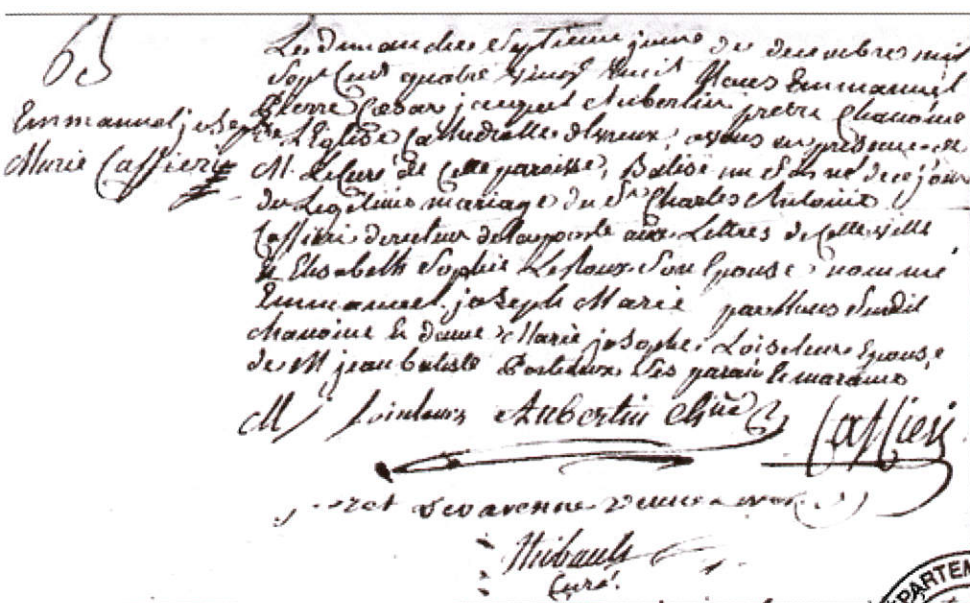 65
Emmanuel joseph
Marie Caffieri
Le dimanche septieme jour de decembre mil
sept cent quatre vingt huit Nous Emmanuel
Pierre Cesar jacques Aubertin pretre chanoine
de L'Eglise Cathedralle d'Evreux, avons en presence de
M. Le Curé de Cette paroisse, Batisé un fils né de ce jour
du Legitime mariage du Sr Charles Antoine
Caffieri directeur de la poste aux Lettres de Cette ville
et Elisabeth Sophie Leroux son Epouse nommé
Emmanuel joseph Marie par Nous susdit
chanoine et dame Marie josephe Loiseleur Epouse
de M jean batiste ses parain et maraine
M j Loiseleur Aubertin chne Caffieri
Devarenne
Thibault
Curé.
DEPARTEM